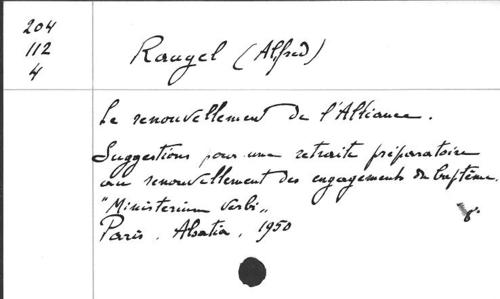 204
112
4
Rangel (Alfred)
Le renouvellement de l'Alliance.
Suggestions pour une retraite préparatoire
au renouvellement des engagements du baptême.
"Ministerium Verbi"
Paris, Alsatia, 1950
8°